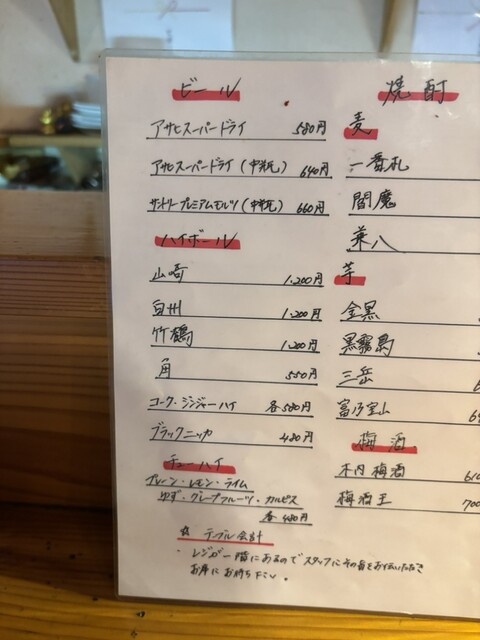 ビール
アサヒスーパードライ 580円
アサヒスーパードライ(中瓶) 640円
サントリープレミアムモルツ(中瓶) 660円
ハイボール
山崎 1,200円
白州 1,200円
竹鶴 1,200円
角 550円
コーク・ジンジャーハイ 各580円
ブラックニッカ 480円
チューハイ
プレーン・レモン・ライム
ゆず・グレープフルーツ・カルピス
各480円
☆ テーブル会計
・レジが一階にあるのでスタッフにその旨をお伝えいただき
お席にお待ち下さい。
焼酎
麦
一番札
閻魔
兼八
芋
金黒
黒霧島
三岳
富乃宝山
梅酒
木内梅酒
梅酒王 700